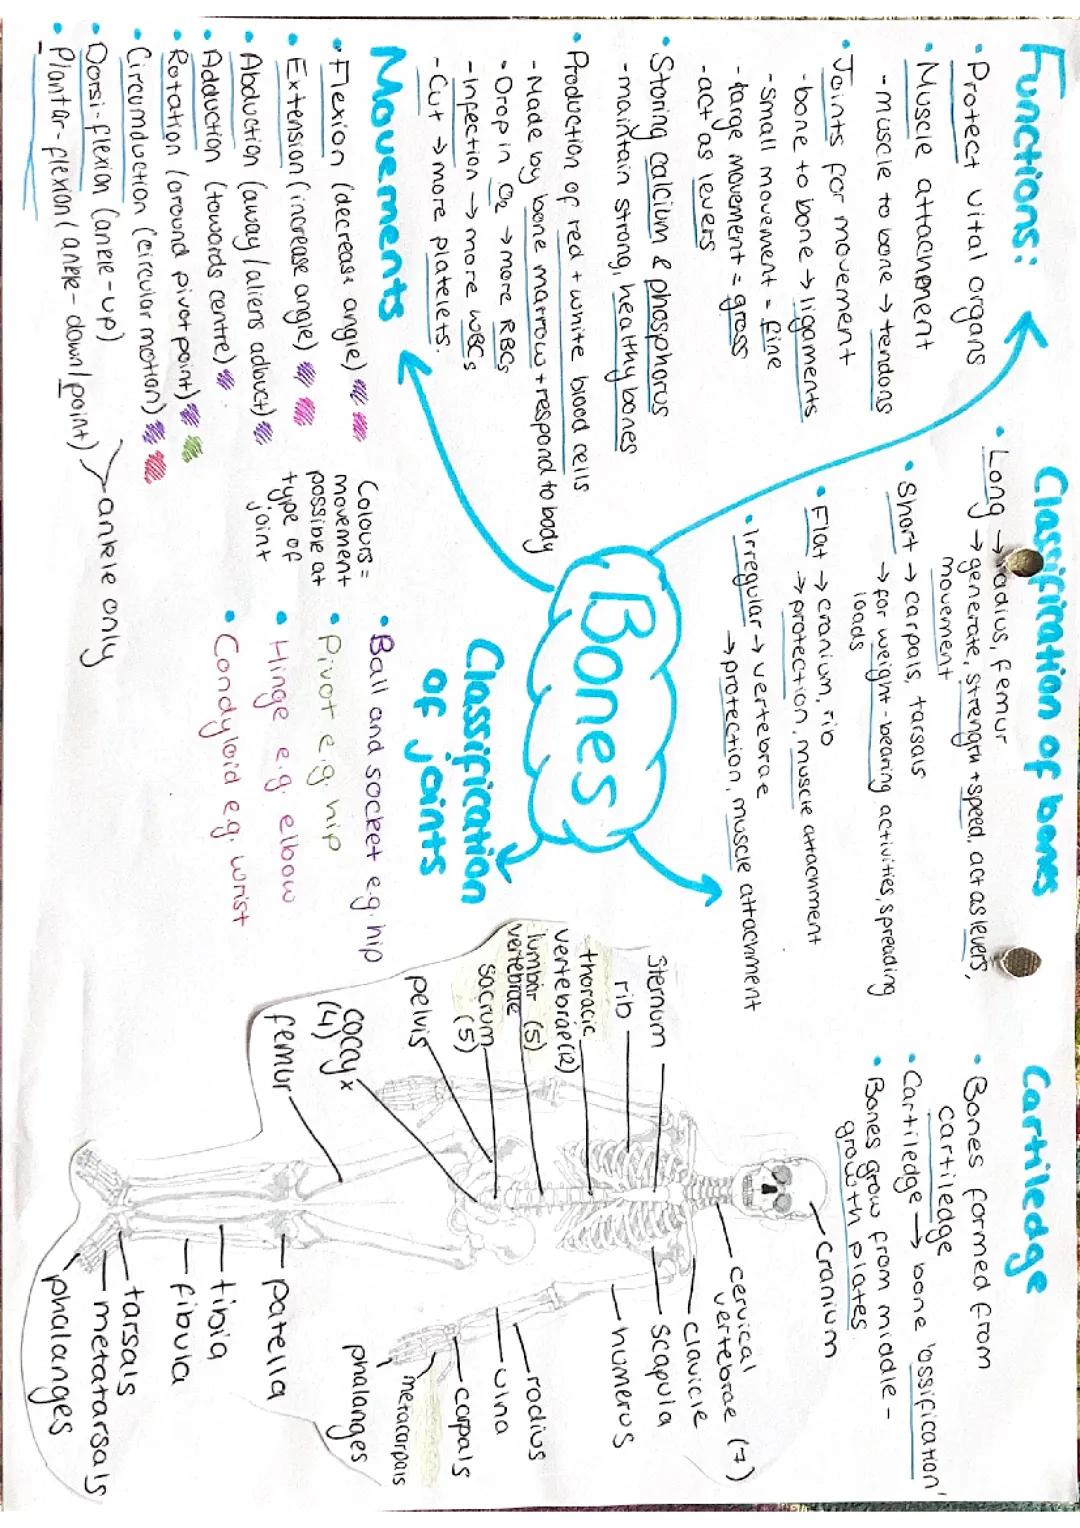 Functions:
• Protect vital organs
• Muscle attachment
- muscle to bone → tendons
• Joints for movement
- bone to bone → ligaments
- small movement = fine
- large movement = gross
- act as levers
• Storing calcium & phosphorus
- maintain strong, healthy bones
• Production of red + white blood cells
- Made by bone marrow + respond to body
• Drop in O2 → more RBCs
- Infection → more WBCs
- Cut → more platelets.
Movements
• Flexion (decrease angle)
• Extension (increase angle)
• Abduction (away/aliens adbuct)
• Adduction (towards centre)
• Rotation (around pivot point)
• Circumduction (circular motion)
• Dorsi-flexion (ankle-up)
• Plantar-flexion (ankle-down/point)
ankle only
Colours =
movement
possible at
type of
joint
Bones
Classification of bones
• Long → radius, femur
→ generate, strength + speed, act as levers,
movement
• Short → carpals, tarsals
→ for weight-bearing activities, spreading
loads
• Flat → cranium, rib
→ protection, muscle attachment
• Irregular → vertebrae
→ protection, muscle attachment
Classification
of joints
• Ball and socket e.g. hip
• Pivot e.g. hip
• Hinge e.g. elbow
• Condyloid e.g. wrist
Cartiledge
• Bones formed from
cartiledge
• Cartiledge → bone 'ossification'
• Bones grow from middle -
growth plates
cranium
cervical
vertebrae (7)
clavicle
scapula
humerus
radius
ulna
carpals
metacarpals
phalanges
sternum
rib
thoracic
vertebrae (12)
lumbar (5)
vertebrae
sacrum
(5)
pelvis
coccyx
(4)
femur
patella
tibia
fibula
tarsals
metatarsals
phalanges